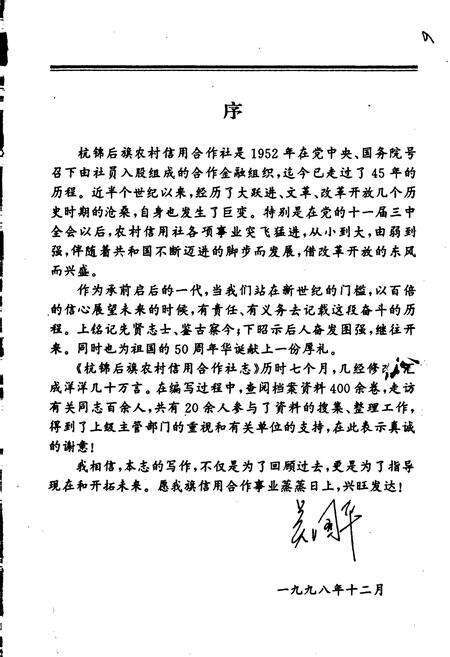 序
杭锦后旗农村信用合作社是1952年在党中央、国务院号
召下由社员入股组成的合作金融组织,迄今已走过了45年的
历程。近半个世纪以来,经历了大跃进、文革、改革开放几个历
史时期的沧桑,自身也发生了巨变。特别是在党的十一届三中
全会以后,农村信用社各项事业突飞猛进,从小到大,由弱到
强,伴随着共和国不断迈进的脚步而发展,借改革开放的东风
而兴盛。
作为承前启后的一代,当我们站在新世纪的门槛,以百倍
的信心展望未来的时候,有责任、有义务去记载这段奋斗的历
程。上铭记先贤志士、鉴古察今;下昭示后人奋发图强,继往开
来。同时也为祖国的50周年华诞献上一份厚礼。
《杭锦后旗农村信用合作社志》历时七个月,几经修
成洋洋几十万言。在编写过程中,查阅档案资料400余卷,走访
有关同志百余人,共有20余人参与了资料的搜集、整理工作,
得到了上级主管部门的重视和有关单位的支持,在此表示真诚
的谢意!
我相信,本志的写作,不仅是为了回顾过去,更是为了指导
现在和开拓未来。愿我旗信用合作事业蒸蒸日上,兴旺发达!
一九九八年十二月